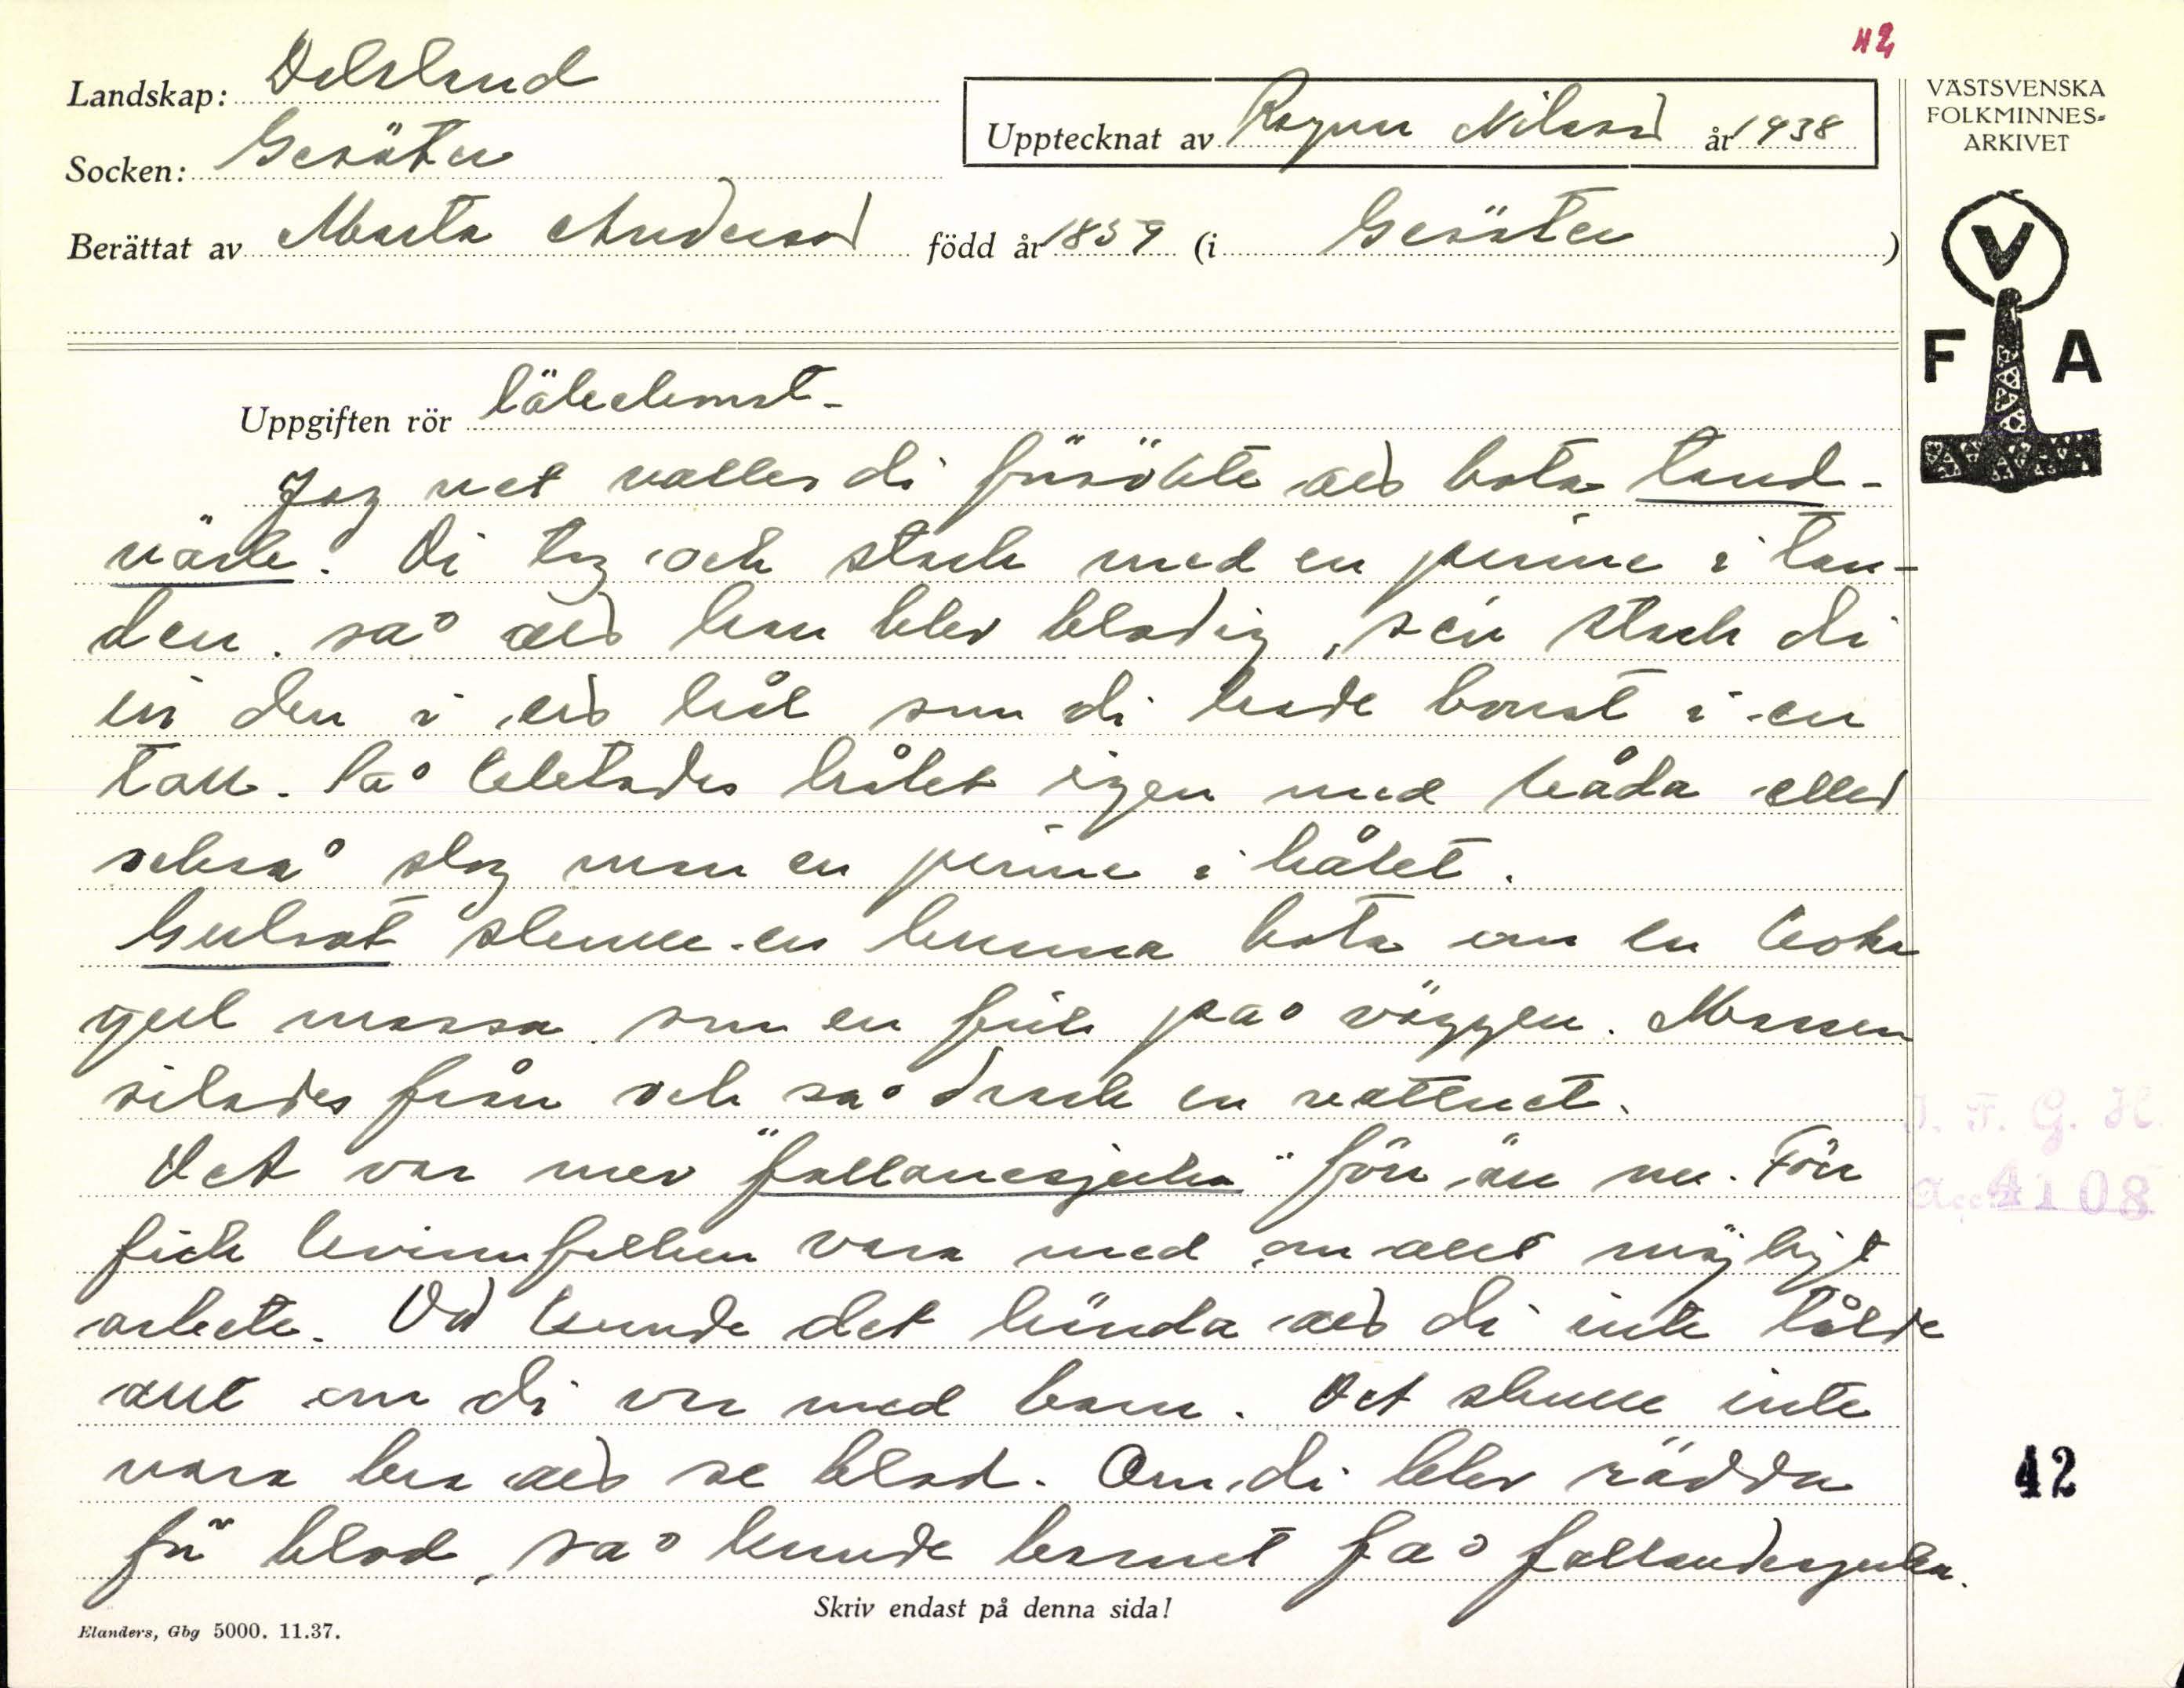 42
Landskap: Dalsland
Upptecknat av Ragnar Nilsson år 1938
Socken: Gesäter
Berättat av Marta Andersson född år 1859 (i Gesäter)
VÄSTSVENSKA
FOLKMINNES-
ARKIVET
V
F A
Uppgiften rör läkekonst.
Jag vet valles di försökte ad bota tand-
värk. Di tog och stack med en pinne i tan-
den. så ad han blev blodig, sen stack di
in den i ed hål som di hade borrat i en
tall. Så kletades hålet igen med kåda eller
också slog man en pinne i hålet.
Gulsot skulle en kunna bota om en koka
gul massa som en fick på väggen. Massen
silades från och så drack en vattnet.
Det var mer "fallanesjuka" förr än nu. Förr
fick kvinnfolken vara med om allt möjligt
arbete. Då kunde det hända ad di inte tålde
allt om di var med barn. Det skulle inte
vara bra ad se blod. Om di blev rädda
för blod, så kunde barnet få fallandesjuka.
J. F. G. H.
Acc. 4108
42
Skriv endast på denna sida!
Elanders, Gbg 5000. 11.37.